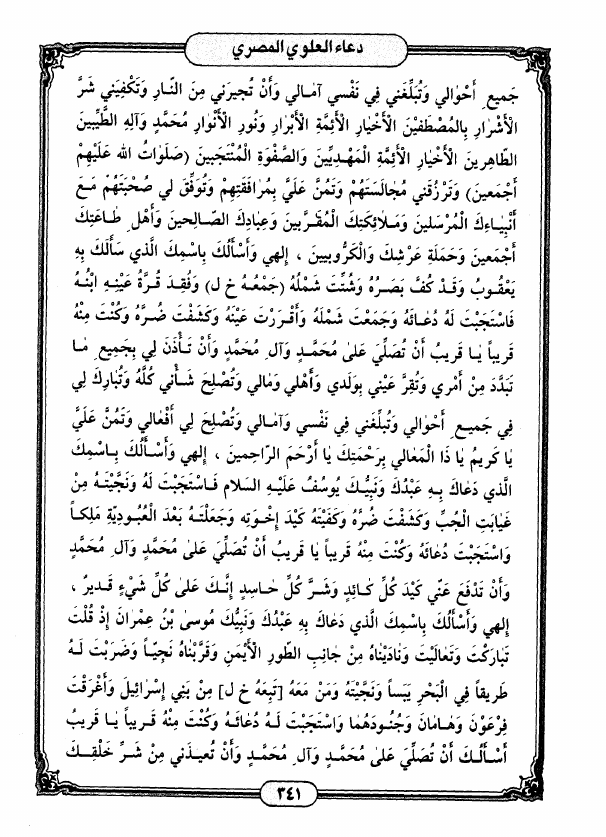 دعاء العلوي المصري
جَميعِ أَحْوالي وَتُبَلِّغَني فِي نَفْسي آمٰالي وَأَنْ تُجيرَني مِنَ النّارِ وَتَكْفِيَني شَرَّ
الْأَشْرارِ بِالمُصْطَفَيْنَ الْأَخْيارِ الْأَئِمَّةِ الْأَبْرارِ وَنُورِ الْأَنْوارِ مُحَمَّدٍ وَآلِهِ الطَّيِّبينَ
الطّاهِرينَ الْأَخْيارِ الْأَئِمَّةِ الْمَهْدِيّينَ وَالصَّفْوَةِ الْمُنْتَجَبينَ (صَلَواتُ الله عَلَيْهِمْ
أَجْمَعينَ) وَتَرْزُقَني مُجالَسَتَهُمْ وَتَمُنَّ عَلَيَّ بِمُرافَقَتِهِمْ وَتُوَفِّقَ لي صُحْبَتَهُمْ مَعَ
أَنْبِياءِكَ الْمُرْسَلينَ وَمَلٰائِكَتِكَ الْمُقَرَّبينَ وَعِبادِكَ الصّالِحينَ وَأَهْلِ طاعَتِكَ
أَجْمَعينَ وَحَمَلَةِ عَرْشِكَ وَالْكَرُّوبيينَ ، إِلهي وَأَسْأَلُكَ بِاسْمِكَ الَّذي سَأَلَكَ بِهِ
يَعْقُوبُ وَقَدْ كُفَّ بَصَرُهُ وَشُتِّتَ شَمْلُهُ (جَمْعُهُ خ ل) وَفُقِدَ قُرَّةُ عَيْنِهِ ابْنُهُ
فَاسْتَجَبْتَ لَهُ دُعٰائَهُ وَجَمَعْتَ شَمْلَهُ وَأَقْرَرْتَ عَيْنَهُ وَكَشَفْتَ ضُرَّهُ وَكُنْتَ مِنْهُ
قَريباً يٰا قَريبُ أَنْ تُصَلِّيَ عَلىٰ مُحَمَّدٍ وَآلِ مُحَمَّدٍ وَأَنْ تَأْذَنَ لي بِجَميعِ مٰا
تَبَدَّدَ مِنْ أَمْري وَتُقِرَّ عَيْني بِوَلَدي وَأَهْلي وَمٰالي وَتُصْلِحَ شَأْني كُلَّهُ وَتُبارِكَ لي
فِي جَميعِ أَحْوالي وَتُبَلِّغَني فِي نَفْسي وَآمٰالي وَتُصْلِحَ لي أَفْعالي وَتَمُنَّ عَلَيَّ
يٰا كَريمُ يٰا ذَا الْمَعالي بِرَحْمَتِكَ يٰا أَرْحَمَ الرّاحِمينَ ، إِلهي وَأَسْأَلُكَ بِاسْمِكَ
الَّذي دَعٰاكَ بِهِ عَبْدُكَ وَنَبِيُّكَ يُوسُفُ عَلَيْهِ السلام فَاسْتَجَبْتَ لَهُ وَنَجَّيْتَهُ مِنْ
غَيٰابَتِ الْجُبِّ وَكَشَفْتَ ضُرَّهُ وَكَفَيْتَهُ كَيْدَ إِخْوَتِهِ وَجَعَلْتَهُ بَعْدَ الْعُبُودِيَّةِ مَلِكاً
وَاسْتَجَبْتَ دُعٰائَهُ وَكُنْتَ مِنْهُ قَريباً يٰا قَريبُ أَنْ تُصَلِّيَ عَلىٰ مُحَمَّدٍ وَآلِ مُحَمَّدٍ
وَأَنْ تَدْفَعَ عَنّي كَيْدَ كُلِّ كٰائِدٍ وَشَرَّ كُلِّ حٰاسِدٍ إِنَّكَ عَلىٰ كُلِّ شَيْءٍ قَديرٌ ،
إِلهي وَأَسْأَلُكَ بِاسْمِكَ الَّذي دَعٰاكَ بِهِ عَبْدُكَ وَنَبِيُّكَ مُوسىٰ بْنُ عِمْرانَ إِذْ قُلْتَ
تَبارَكْتَ وَتَعٰالَيْتَ وَنٰادَيْنٰاهُ مِنْ جٰانِبِ الطّورِ الْأَيْمَنِ وَقَرَّبْنٰاهُ نَجِيّاً وَضَرَبْتَ لَهُ
طَريقاً فِي الْبَحْرِ يَبَساً وَنَجَّيْتَهُ وَمَنْ مَعَهُ [تَبِعَهُ خ ل] مِنْ بَنِي إِسْرائِيلَ وَأَغْرَقْتَ
فِرْعَوْنَ وَهٰامٰانَ وَجُنُودَهُمٰا وَاسْتَجَبْتَ لَهُ دُعٰائَهُ وَكُنْتَ مِنْهُ قَريباً يٰا قَريبُ
أَسْأَلُكَ أَنْ تُصَلِّيَ عَلىٰ مُحَمَّدٍ وَآلِ مُحَمَّدٍ وَأَنْ تُعيذَني مِنْ شَرِّ خَلْقِكَ
٣٤١